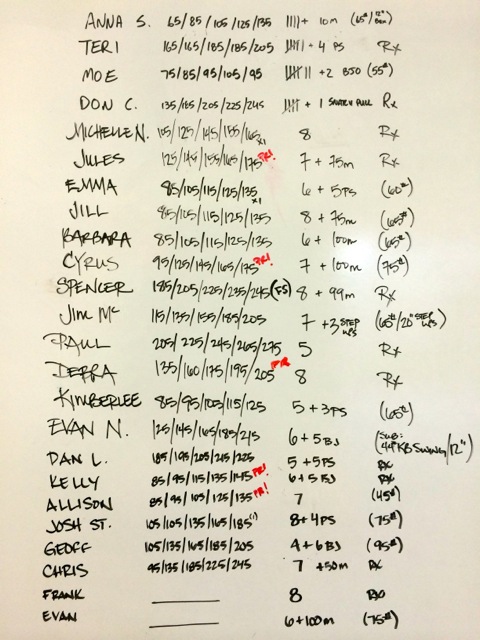 ANNA S. 65/85/105/125/135 IIII + 10m (65#/12" Box)
TERI 165/165/185/185/205 + 4 PS Rx
MOE 75/85/95/105/95 + 2 BJO (55#)
DON C. 135/185/205/225/245 + 1 SNATCH PULL Rx
MICHELLE N. 105/125/145/155/165 x1 8 Rx
JULES 125/145/155/165/175 PR! 7 + 75m Rx
EMMA 85/105/115/125/135 x1 6 + 5PS (60#)
JILL 85/105/115/125/135 8 + 75m (65#)
BARBARA 85/105/115/125/135 6 + 100m (65#)
CYRUS 95/125/145/165/175 PR! 7 + 100m (75#)
SPENCER 185/205/225/235/245 (FS) 8 + 99m Rx
Jim Mc 115/135/155/185/205 7 + 3 STEP UPS (65#/20" STEP UPS)
PAUL 205/225/245/265/275 5 Rx
DEBRA 135/160/175/195/205 PR 8 Rx
KIMBERLEE 85/95/105/115/125 5 + 3PS (65#)
EVAN N. 125/145/165/185/215 6 + 5 BJ (SUB: 44# KB SWING/12")
DAN L. 185/195/205/215/225 5 + 5PS Rx
KELLY 85/95/115/135/145 PR! 6 + 5 BJ Rx
ALLISON 85/95/105/125/135 PR! 7 (45#)
JOSH ST. 105/105/135/165/185(1) 8 + 4PS (75#)
GEOFF 105/135/165/185/205 4 + 6 BJ (95#)
CHRIS 95/135/185/225/245 7 + 50m Rx
FRANK 8 Rx
EVAN 6 + 100m (75#)